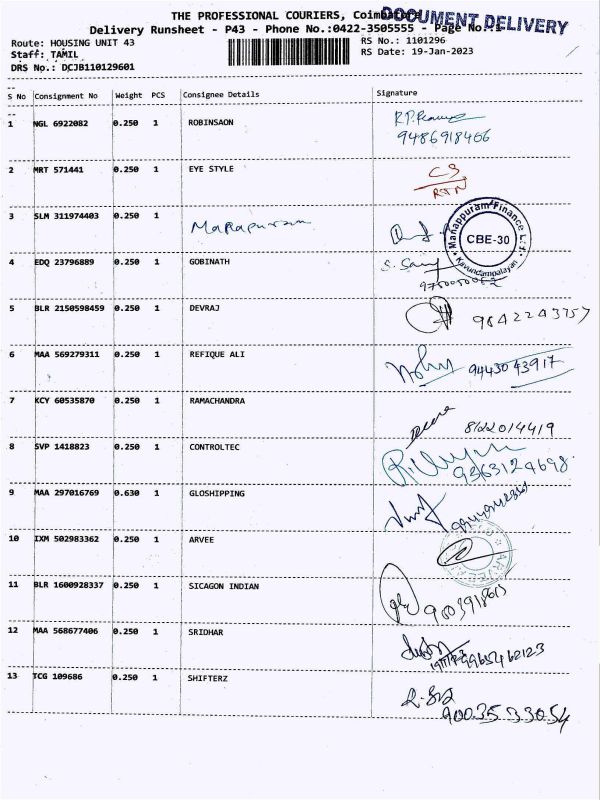 THE PROFESSIONAL COURIERS, Coimbatore
DOCUMENT DELIVERY
Delivery Runsheet - P43 - Phone No.:0422-3505555 - Page No.:1
Route: HOUSING UNIT 43
RS No.: 1101296
Staff: TAMIL
RS Date: 19-Jan-2023
DRS No.: DCJB110129601
S No Consignment No Weight PCS Consignee Details Signature
1 NGL 6922082 0.250 1 ROBINSAON
9486918466
2 MRT 571441 0.250 1 EYE STYLE
3 SLM 311974403 0.250 1 Manapuram
Manappuram Finance Ltd.
CBE-30
Kavundampalayam
4 EDQ 23796889 0.250 1 GOBINATH
5 BLR 2150598459 0.250 1 DEVRAJ
9842243757
6 MAA 569279311 0.250 1 REFIQUE ALI
9443043917
7 KCY 60535870 0.250 1 RAMACHANDRA
8122014419
8 SVP 1418823 0.250 1 CONTROLTEC
9363124698
9 MAA 297016769 0.630 1 GLOSHIPPING
10 IXM 502983362 0.250 1 ARVEE
11 BLR 1600928337 0.250 1 SICAGON INDIAN
12 MAA 568677406 0.250 1 SRIDHAR
9965462123
13 TCG 109686 0.250 1 SHIFTERZ
9003533054